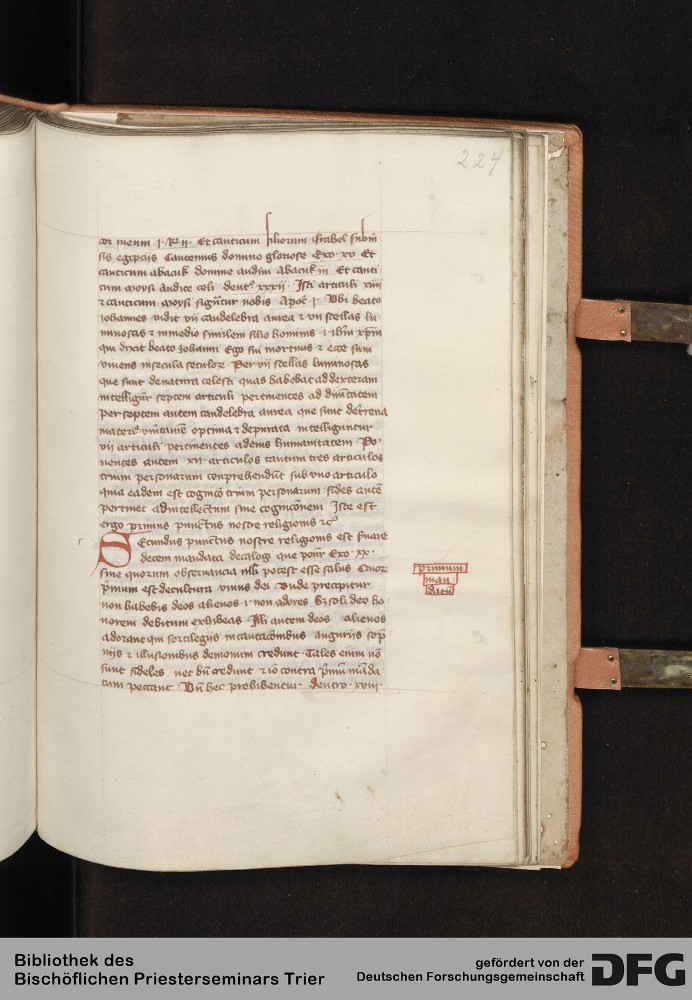 224
cor meum ·i· Rͫ ii· Et canticum filiorum israhel subm̄
sis egipciis Cantemus domino gloriose Exo· xv Et
canticum abacuk domine audiui abacuk iii Et canti
cum moysi audite celi deutº xxxii· Isti articuli xiiii
⁊ canticum moysi signātur nobis Apoc̄ i· Vbi beatꝰ
iohannes vidit vii candelebra aurea ⁊ vii stellas lu
minosas ⁊ in medio similem filio hominis ·i· ihm̄ xp̄m
qui dixit beato iohanni Ego fui mortuus ⁊ ecce sum
viuens in secula seculoꝝ Per vii stellas luminosas
que sunt de natura celesti quas habebat ad dexteram
intelligūr septem articuli pertinentes ad diuītatem
per septem autem candelebra aurea que sunt de trena
materia optima ⁊ depurata intelliguntur
vii articuli pertinentes ad eius humanitatem Po
nentes autem xii· articulos tantum tres articulos
trium personarum conprehendūt sub vno articulo
quia eadem est cognicō trium personarum fides autē
pertinet ad intellectum siue cognicōnem Iste est
ergo primus punctus nostre religionis ⁊cº
Secundus punctus nostre religionis est seruare
decem mandata decalogi que ponūr Exo· xx·
sine quorum obseruancia nlli potest esse salus Quoꝝ
p̄mum est de cultura vnius dei Vnde precipitur
non habebis deos alienos ·i· non adores sꝫ soli deo ho
norem debitum exhibeas Illi autem deos alienos
adorant qui sortilegiis incantacōnibus auguriis sop̄
niis ⁊ illusionibus demonum credunt Tales enim nō
sunt fideles nec bn̄ credunt ⁊ iō contra p̄mū māda
tum peccant Vn̄ hec prohibentur deutro· xviii·
primum
man
datū
Bibliothek des
Bischöflichen Priesterseminars Trier
gefördert von der
Deutschen Forschungsgemeinschaft
DFG